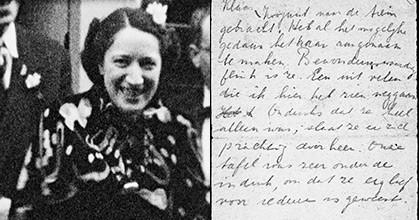 Klaar
gebracht. Heb al het mogelijke
gedaan het haar aangenaam
te maken. Bewonderenswaardig
flink is ze. Een uit velen
die ik hier heb zien weggaan
Ondanks dat ze heel
alleen was, slaat ze er zich
prachtig door heen. Onze
tafel was zeer onder de
indruk, omdat ze erg lief
voor iedereen is geweest.